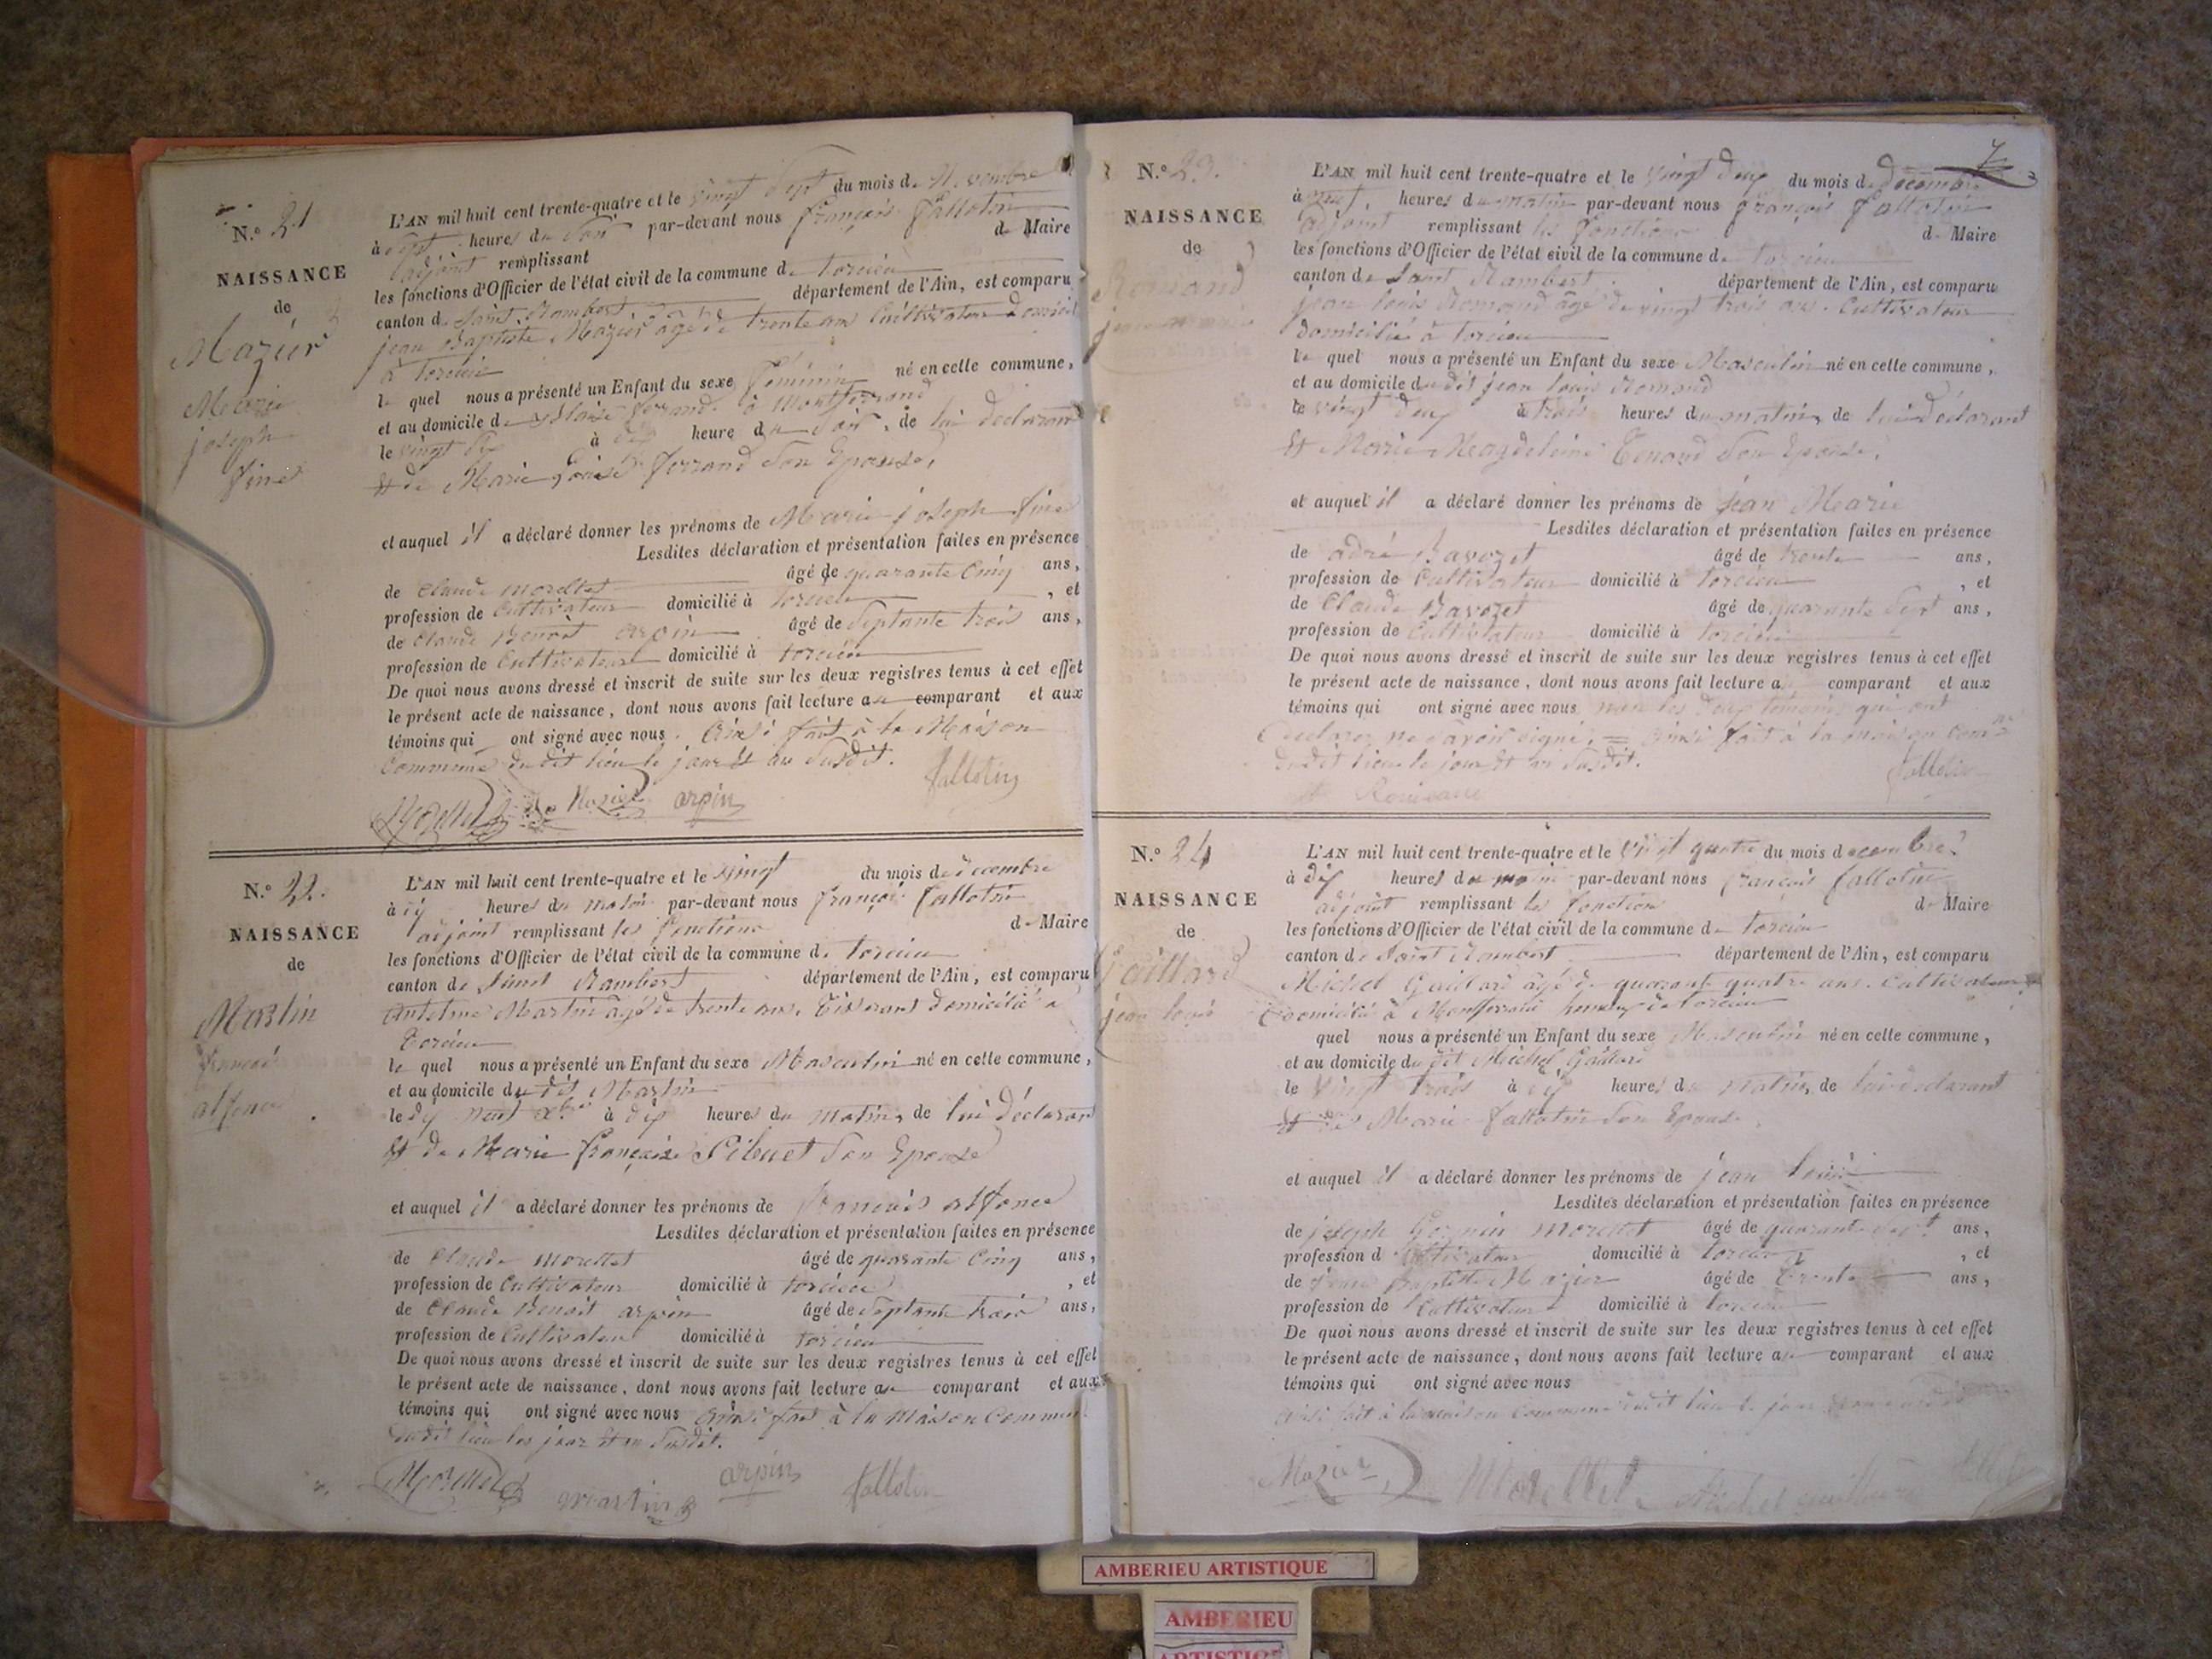 N.º 21
NAISSANCE
de
Mazier
Marie
joseph
fine
L'AN mil huit cent trente-quatre et le vingt Sept du mois de Novembre
à Sept heures du Soir par-devant nous françois fallotin
adjoint remplissant de Maire
les fonctions d'Officier de l'état civil de la commune de torcieu
canton de Saint Rambert département de l'Ain, est comparu
jean Baptiste Mazier agé de trente ans Cultivateur domicil
à torcieu
le quel nous a présenté un Enfant du sexe féminin né en celle commune,
et au domicile de ferrand à Montferrand
le vingt Six à heure du Soir, de lui déclarant
Et de Marie Louise ferrand Son Epouse,
et auquel il a déclaré donner les prénoms de Marie joseph fine
Lesdites déclaration et présentation faites en présence
de Claude morellet âgé de quarante Cinq ans,
profession de Cultivateur domicilié à torcieu , et
de Claude Benoit arpin âgé de Septante trois ans,
profession de Cultivateur domicilié à torcieu
De quoi nous avons dressé et inscrit de suite sur les deux registres tenus à cet effet
le présent acte de naissance, dont nous avons fait lecture au comparant et aux
témoins qui ont signé avec nous. Ainsi fait à la Maison
Commune du dit lieu le jour et an Susdit.
Morellet Mazier arpin fallotin
N.º 22.
NAISSANCE
de
Martin
francois
alfonce
L'AN mil huit cent trente-quatre et le vingt du mois de decembre
à dix heures du matin par-devant nous françois fallotin
adjoint remplissant les fonctions de Maire
les fonctions d'Officier de l'état civil de la commune de torcieu
canton de Saint Rambert département de l'Ain, est comparu
Antelme Martin agé de trente ans, Tisserant domicilié a
Torcieu
le quel nous a présenté un Enfant du sexe Masculin né en celle commune,
et au domicile du dit Martin
le dix neuf Xbre à dix heures du matin, de lui déclarant
Et de Marie françoise Son Epouse
et auquel il a déclaré donner les prénoms de francois alfonce
Lesdites déclaration et présentation faites en présence
de Claude morellet âgé de quarante Cinq ans,
profession de Cultivateur domicilié à torcieu , et
de Claude Benoit arpin âgé de Septante trois ans,
profession de Cultivateur domicilié à torcieu
De quoi nous avons dressé et inscrit de suite sur les deux registres tenus à cet effet
le présent acte de naissance, dont nous avons fait lecture au comparant et aux
témoins qui ont signé avec nous Ainsi fait à la Maison Commune
dudit lieu les jour et an Susdit.
Morellet martin arpin fallotin
7
N.º 23.
NAISSANCE
de
Romand
jean marie
L'AN mil huit cent trente-quatre et le vingt deux du mois de décembre
à neuf heures du matin par-devant nous françois fallotin
adjoint remplissant les fonctions de Maire
les fonctions d'Officier de l'état civil de la commune de torcieu
canton de Saint Rambert département de l'Ain, est comparu
jean louis Romand agé de vingt trois ans. Cultivateur
domicilié à torcieu
le quel nous a présenté un Enfant du sexe Masculin né en celle commune,
et au domicile du dit jean louis Romand
le vingt deux à trois heures du matin, de lui déclarant
Et Marie Magdeleine Tenand Son Epouse,
et auquel il a déclaré donner les prénoms de jean Marie
Lesdites déclaration et présentation faites en présence
de adré Bavozet âgé de trente ans,
profession de Cultivateur domicilié à torcieu , et
de Claude Bavozet âgé de quarante Sept ans,
profession de Cultivateur domicilié à torcieu
De quoi nous avons dressé et inscrit de suite sur les deux registres tenus à cet effet
le présent acte de naissance, dont nous avons fait lecture a comparant et aux
témoins qui ont signé avec nous non les deux témoins qui ont
declarer ne savoir signé, = ainsi fait à la maison comne
dudit lieu le jour et an Susdit.
fallotin
N.º 24
NAISSANCE
de
Gaillard
jean louis
L'AN mil huit cent trente-quatre et le vingt quatre du mois decembre
à dix heures du matin par-devant nous françois fallotin
adjoint remplissant les fonction de Maire
les fonctions d'Officier de l'état civil de la commune de torcieu
canton de Saint Rambert département de l'Ain, est comparu
Michel Gaillard agé de quarante quatre ans. Cultivateur
domicilié à Montferrand hameau de torcieu
quel nous a présenté un Enfant du sexe Masculin né en celle commune,
et au domicile du dit Michel Gaillard
le vingt trois à dix heures du matin, de lui declarant
et de Marie fallotin Son Epouse,
et auquel il a déclaré donner les prénoms de jean louis
Lesdites déclaration et présentation faites en présence
de joseph morellet âgé de quarante Sept ans,
profession de Cultivateur domicilié à torcieu , et
de jean Baptiste Mazier âgé de Trente ans,
profession de Cultivateur domicilié à torcieu
De quoi nous avons dressé et inscrit de suite sur les deux registres tenus à cet effet
le présent acte de naissance, dont nous avons fait lecture au comparant et aux
témoins qui ont signé avec nous
ainsi fait à la maison commune dudit lieu le jour et an susdit
Mazier Morellet Michel gaillard
AMBERIEU ARTISTIQUE
AMBERIEU
ARTISTIQUE